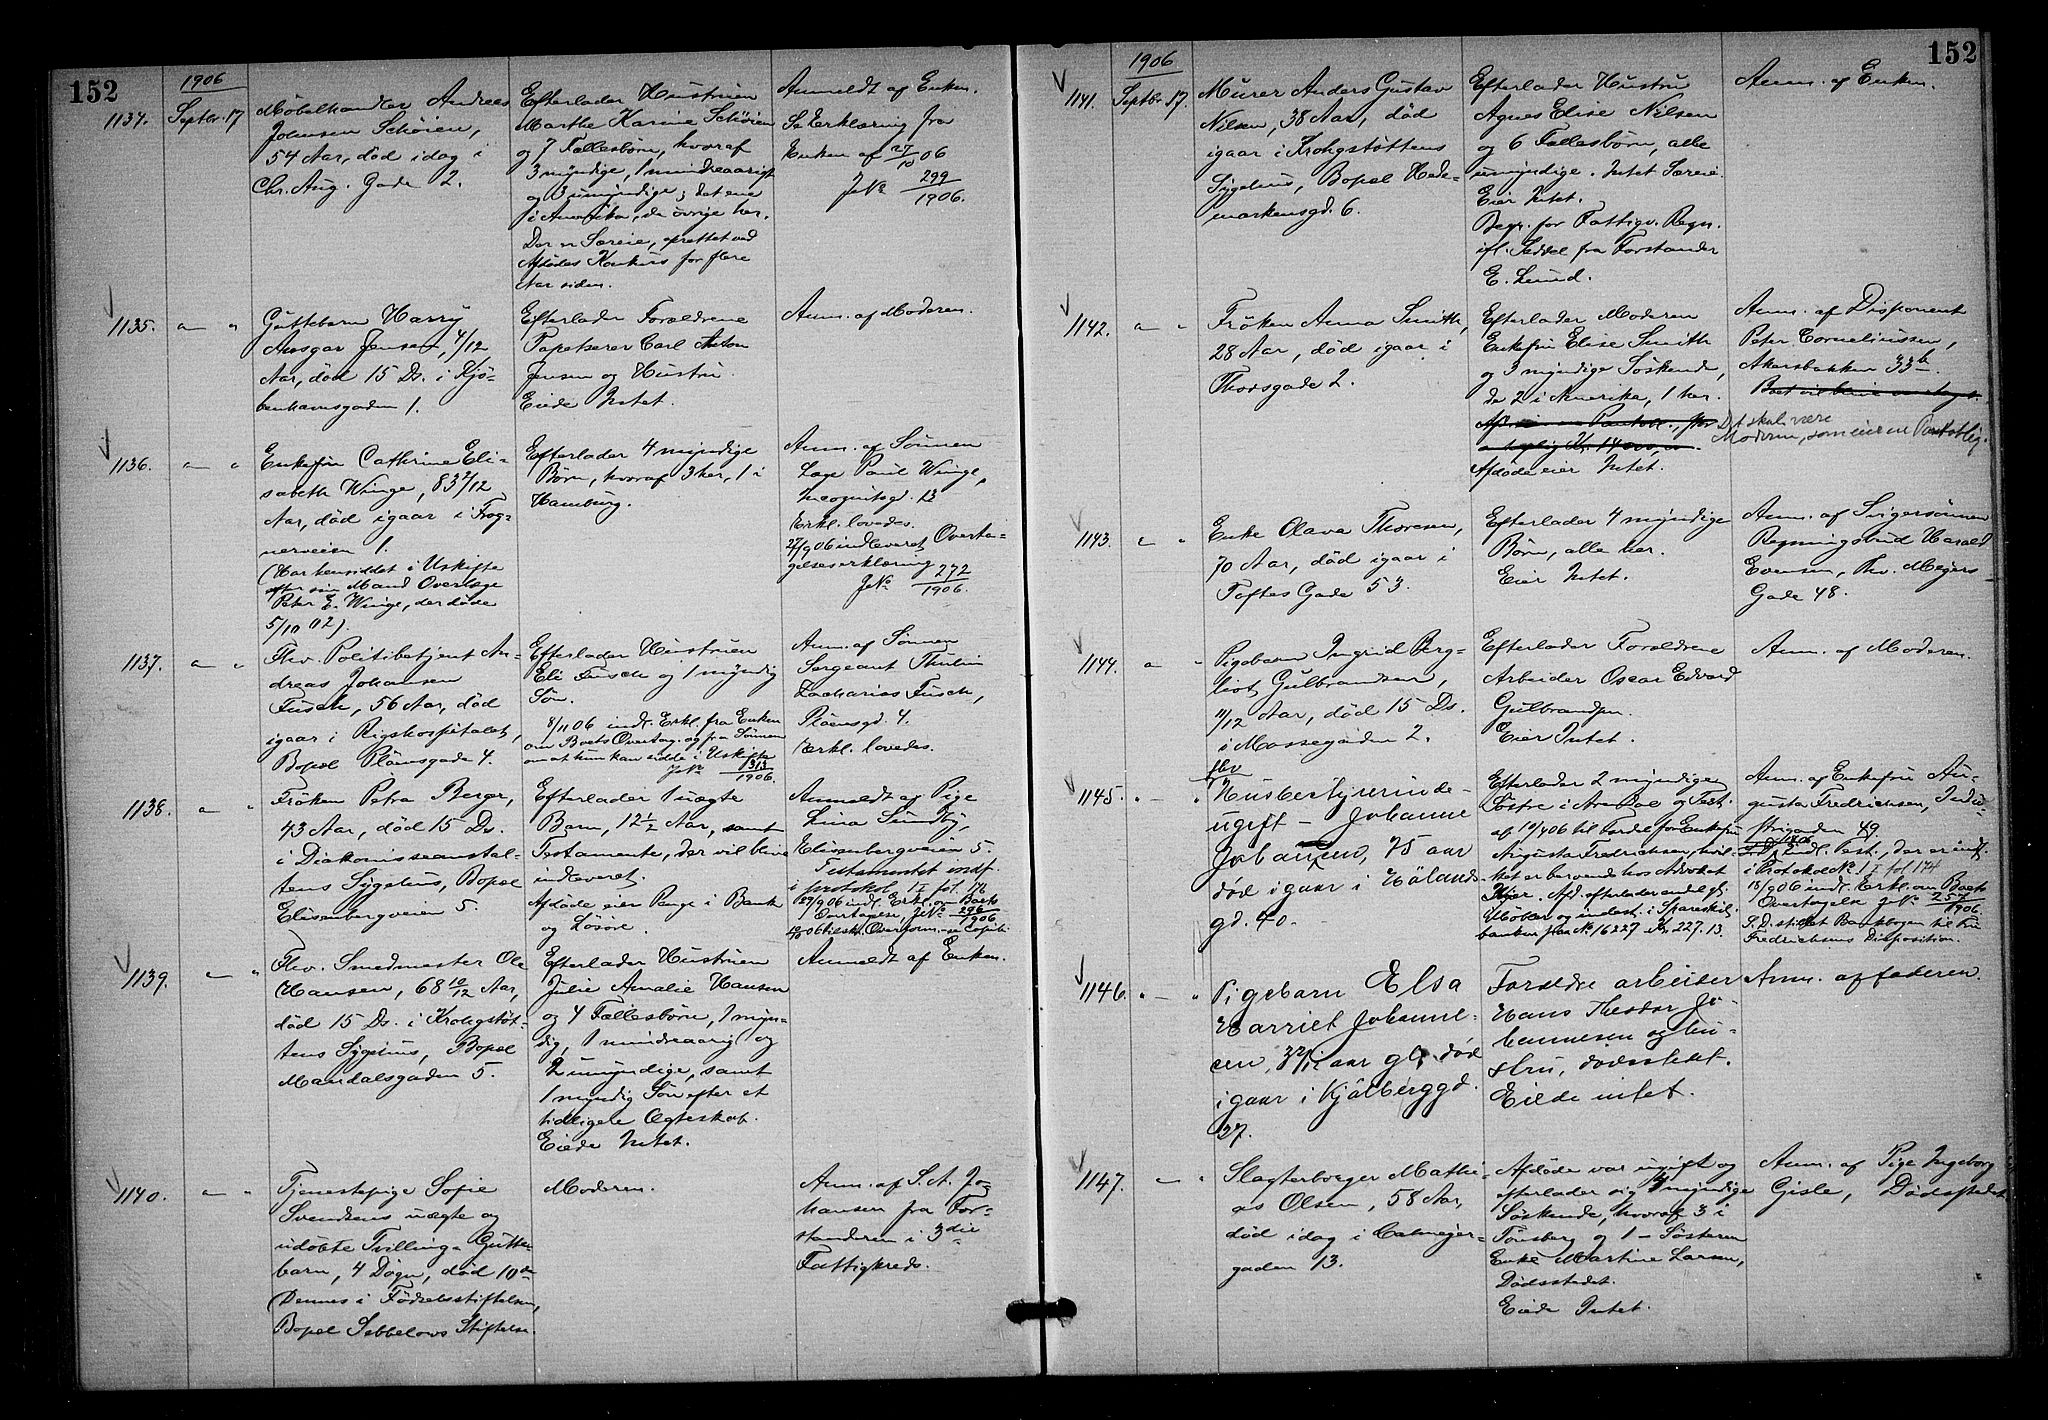 152
1906
1134.
Septbr. 17
Möbelhandler Andreas
Johnsen Schöien,
54 Aar, död idag i
Chr. Aug. Gade 2.
Efterlader Hustruen
Marthe Karine Schöien
og 7 Fællesbörn, hvoraf
3 myndige, 1 mindreaarigt
og 3 umyndige; det ene
i Amerika, de övrige her.
Der er Særeie, oprettet ved
Afdödes Konkurs for flere
Aar siden.
Anmeldt af Enken.
Se Erklæring fra
Enken af 27/10 06
J.No 299/1906.
1135.
Guttebarn Harry
Ansgar Jensen, 4/12
Aar, död 15 Ds. i Kjö-
benhavnsgaden 1.
Efterlader Forældrene
Tapetserer Carl Anton
Jensen og Hustru.
Eiede Intet.
Anm. af Moderen.
1136.
Enkefru Cathrine Eli-
sabeth Winge, 83 4/12
Aar, död igaar i Frog-
nerveien 1.
(Har hensiddet i Uskifte
efter sin Mand Overlæge
Peter E. Winge, der döde
5/10 02).
Efterlader 4 myndige
Börn, hvoraf 3 her, 1 i
Hamburg.
Anm. af Sönnen
Læge Paul Winge,
Incognitogd. 12
Erkl. lovedes.
27/9 06 indleveret Overta-
gelseserklæring
J.No 272/1906.
1137.
Fhv. Politibetjent An-
dreas Johansen
Fusch, 56 Aar, död
igaar i Rigshospitalet,
Bopæl Plöensgade 4.
Efterlader Hustruen
Eli Fusch og 1 myndig
Sön.
8/11 06 indl. Erkl. fra Enken
om Boets Overtag. og fra Sönnen
om at hun kan sidde i Uskifte
J.No 313/1906.
Anm. af Sönnen
Sergeant Thulin
Zacharias Fusch,
Plöensgd. 4.
Erkl. lovedes.
1138.
Fröken Petra Berger,
43 Aar, död 15 Ds.
i Diakonisseanstal-
tens Sygehus, Bopæl
Elisenbergveien 5.
Efterlader 1 uægte
Barn, 12 1/2 Aar, samt
Testamente, der vil blive
indleveret.
Afdöde eier Penge i Bank
og Lösöre.
Anmeldt af Pige
Lina Sundby,
Elisenbergveien 5.
Testamentet indf.
i protokol I fol. 176
29/9 06 indl. Erkl. om Boets
Overtagelse, J.No 296/1906
1139.
Fhv. Smedmester Ole
Hansen, 68 10/12 Aar,
död 15 Ds. i Krohgstöt-
tens Sygehus, Bopæl
Mandalsgaden 5.
Efterlader Hustruen
Julie Amalie Hansen
og 4 Fællesbörn, 1 myn-
dig, 1 mindreaarig og
2 umyndige, samt
1 myndig Sön efter et
tidligere Ægteskab.
Eiede Intet.
Anmeldt af Enken.
1140.
Tjenestepige Sofie
Svendsens uægte og
udöbte Tvilling-Gutte-
barn, 4 Dögn, död 10de
Dennes i Födselsstiftelsen,
Bopæl Sebbelows Stiftelse.
Moderen.
Anm. af S. A. Jo-
hansen fra For-
standeren i 3die
Fattigkreds.
152
1906
1141.
Septbr. 17.
Murer Anders Gustav
Nilsen, 38 Aar, död
igaar i Krohgstöttens
Sygehus, Bopæl Hede-
markensgd. 6.
Efterlader Hustru
Agnes Elise Nilsen
og 6 Fællesbörn, alle
umyndige. Intet Særeie.
Eier Intet.
Begr. for Fattigv. Regn.
ifl. Seddel fra Forstander
E. Lund.
Anm. af Enken.
1142.
Fröken Anna Smith,
28 Aar, död igaar i
Thorsgade 2.
Efterlader Moderen
Enkefru Elise Smith
og 3 myndige Söskende,
de 2 i Amerika, 1 her.
Afdöde eier Intet.
Anm. af Disponent
Peter Corneliussen,
Akersbakken 33b.
Boet vil blive
Det skal være
Moderen, som eier en Pantoblig.
1143.
Enke Olava Thoresen,
70 Aar, död igaar i
Toftes Gade 53.
Efterlader 4 myndige
Börn, alle her.
Eier Intet.
Anm. af Svigersönnen
Regningsbud Harald
Evensen, Thv. Meyers
Gade 48.
1144.
Pigebarn Ingrid Berg-
liot Gulbrandsen,
11/12 Aar, död 15 Ds.
i Mossegaden 2.
Efterlader Forældrene
Arbeider Oscar Edvard
Gulbrandsen.
Eier Intet.
Anm. af Moderen.
1145.
fhv
Husbestyrerinde-
ugift - Johanne
Johansen, 75 aar
död igaar i Hölands-
gd. 40.
Efterlader 2 myndige
Söstre i Arendal og Test.
af 19/4 06 til Fordel for Enkefru
Augusta Fredrichsen, hvil-
ket er beroende hos Advokat
Kjær. Afd. efterlader endel
Möbler og indest. i Spareskil.
banken paa No. 16227 Kr. 227.13.
Anm. af Enkefru Au-
gusta Fredrichsen, Indu-
strigaden 49.
S. D. indl. Test., der er indf.
i Protokol No. I fol 174
18/9 06 indl. Erkl. om Boets
Overtagelse J.No 257/1906.
S. D. slettet Bankbogen til Fru
Fredrichsens Disposition.
1146.
Pigebarn Elsa
Harriet Johanne-
sen, aar gl. död
igaar i Kjölberggd.
27.
Forældre arbeider
Hans Theodor Jo-
hannesen og hu-
stru, dödsstedet.
Eiede intet.
Anm. af faderen.
1147.
Slagterborger Mathi-
as Olsen, 58 Aar,
död idag i Calmeyer-
gaden 13.
Afdöde var ugift og
efterlader sig 4 myndige
Söskende, hvoraf 3 i
Tönsberg og 1 - Sösteren
Enke Martine Larsen,
Dödsstedet.
Eiede Intet.
Anm. af Pige Ingeborg
Gisle, Dödsstedet